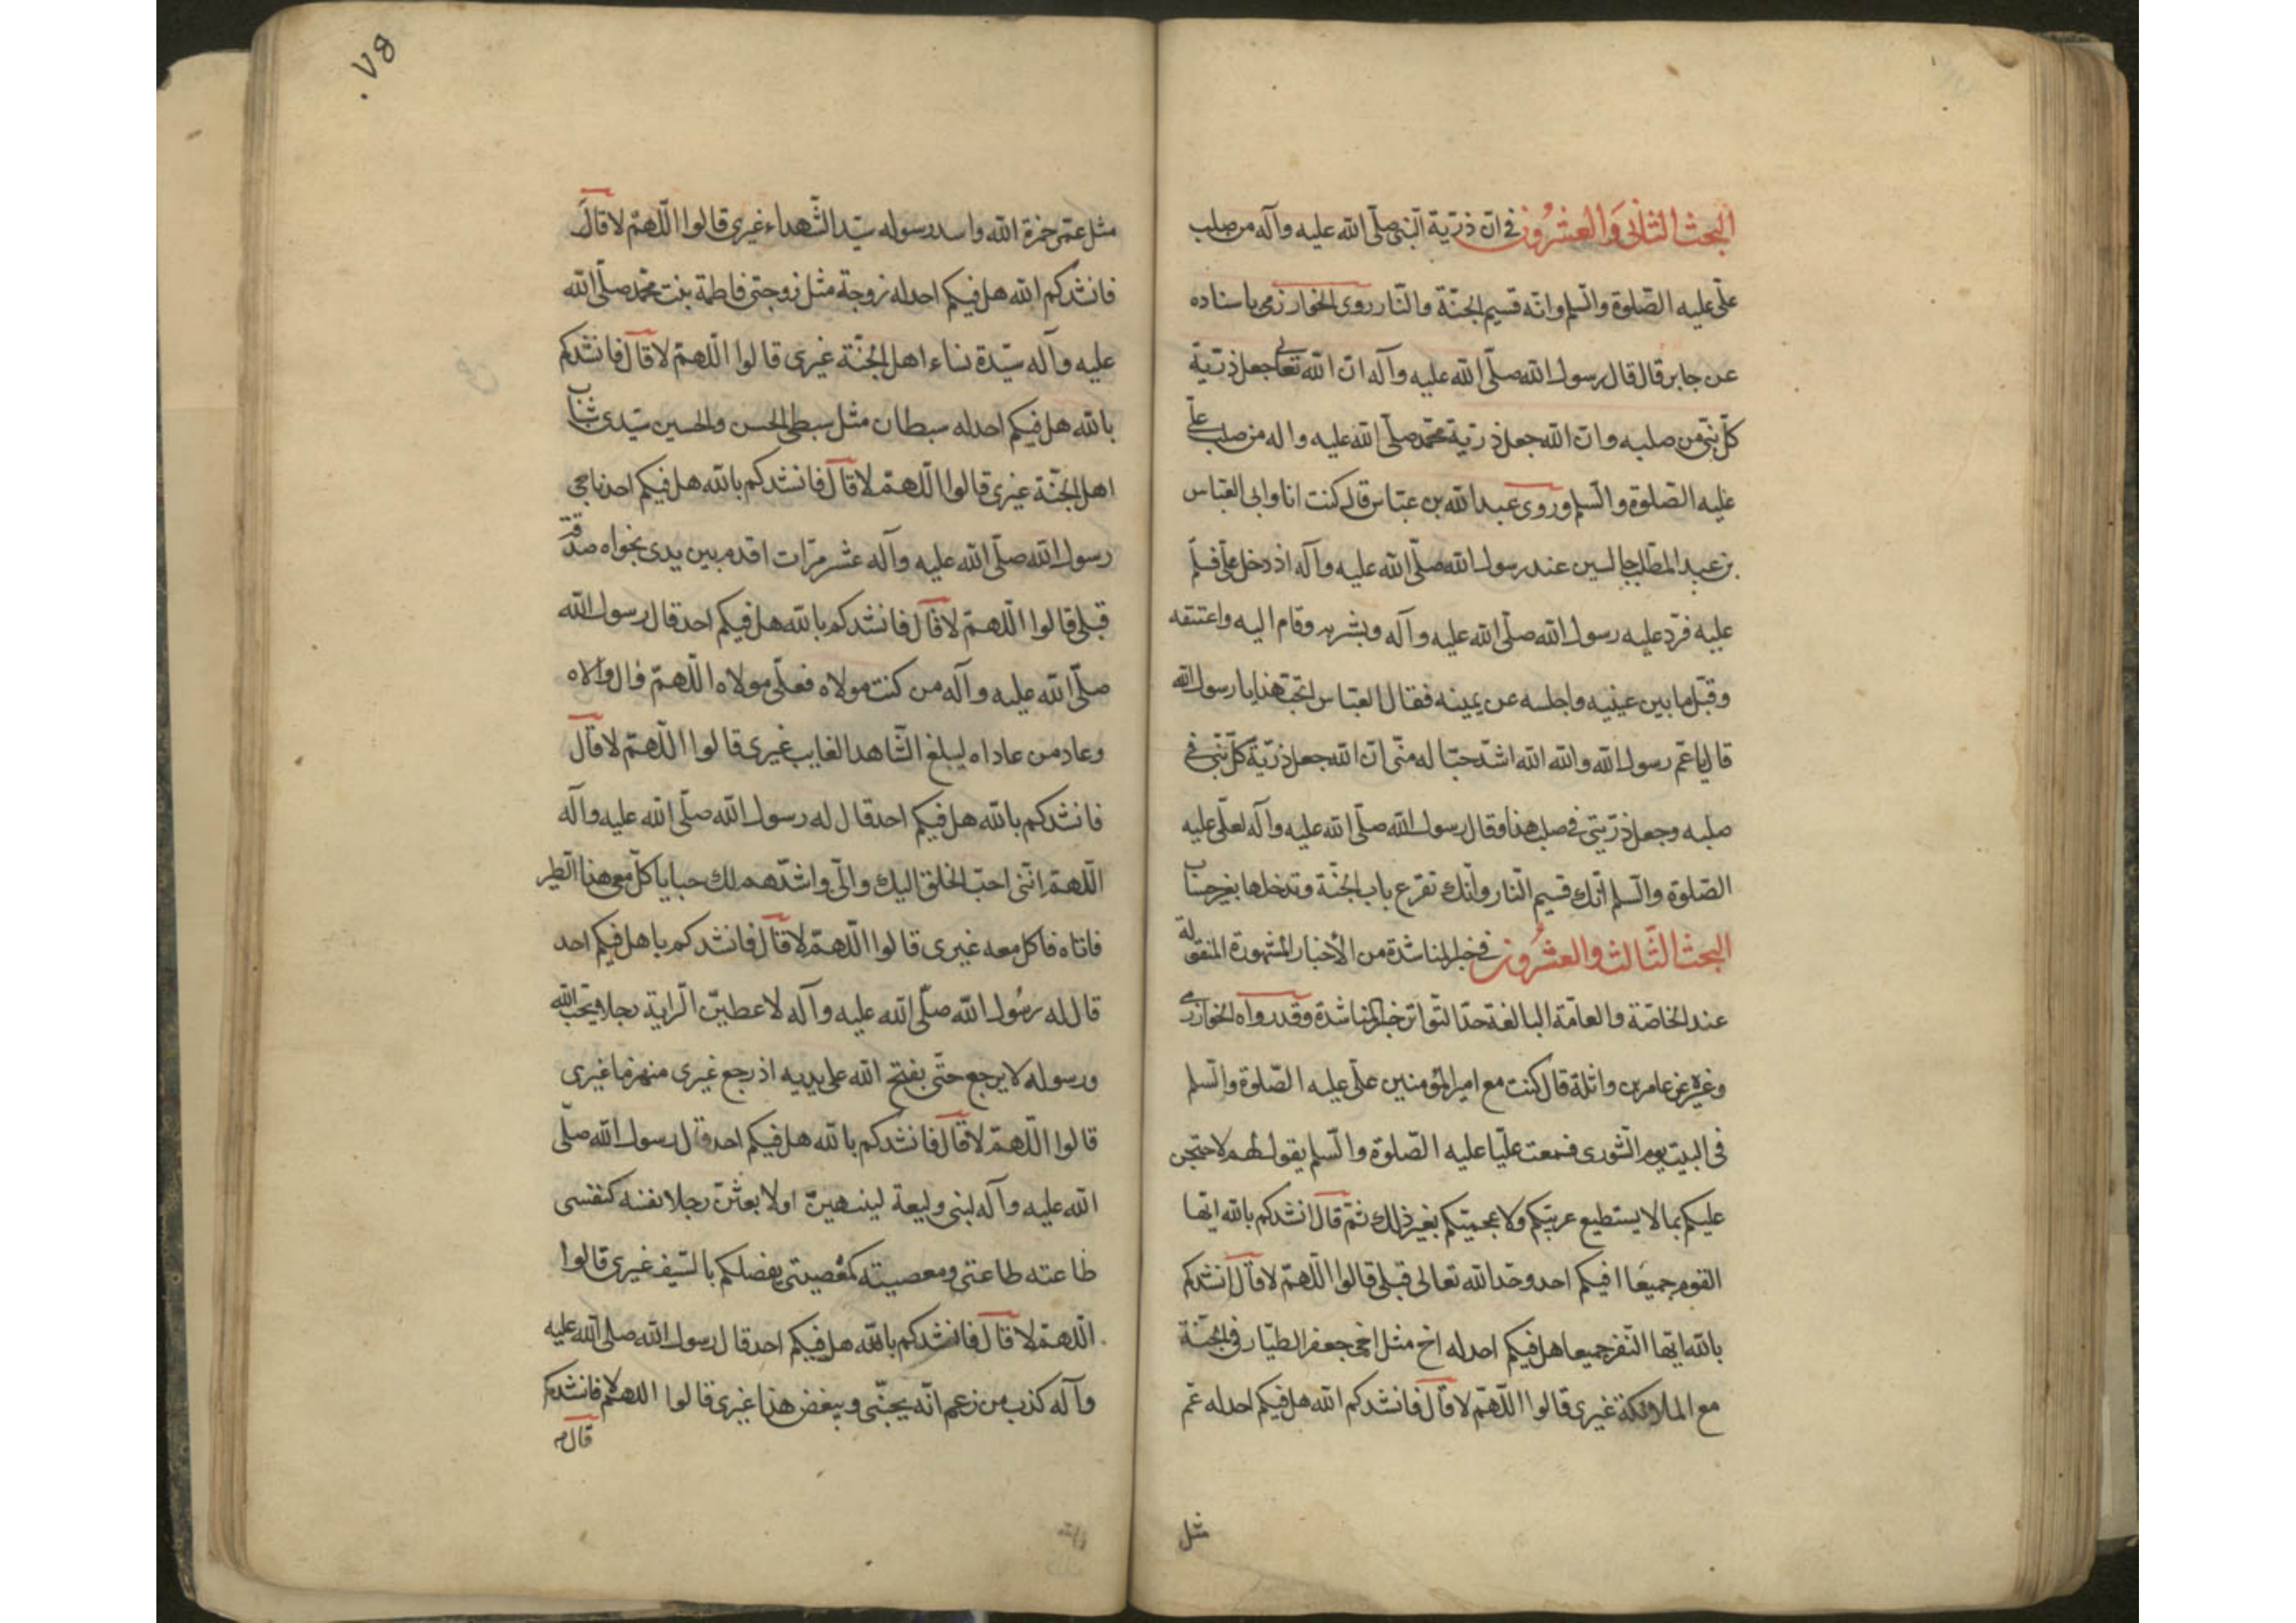 البحث الثانی والعشرون فی ان ذریة النبی صلّی الله علیه وآله من صلب
علی علیه الصّلوة والسّلم وانه قسیم الجنّة والنّار روی الخوارزمی باسناده
عن جابر قال قال رسول الله صلّی الله علیه وآله ان الله تعالی جعل ذریّة
کلّ نبیّ من صلبه وان الله جعل ذریّة محمّد صلّی الله علیه واله من صلب علیّ
علیه الصّلوة والسّلم وروی عبد الله بن عبّاس قال کنت انا وابی العبّاس
بن عبد المطّلب جالسین عند رسول الله صلّی الله علیه وآله اذ دخل علیّ فسلّم
علیه فردّ علیه رسول الله صلّی الله علیه وآله وبشر به وقام الیه واعتنقه
وقبّل ما بین عینیه واجلسه عن یمینه فقال العبّاس اتحبّ هذا یا رسول الله
قال یا عمّ رسول الله والله الله اشدّ حبّا له منّی انّ الله جعل ذرّیّة کلّ نبّی فی
صلبه وجعل ذرّیتی فی صلب هذا وقال رسول الله صلّی الله علیه وآله لعلّی علیه
الصّلوة والسّلم انّک قسیم النّار وانّک تقرع باب الجنّة وتدخلها بغیر حساب
البحث الثّالث والعشرون فی خبر المناشدة من الأخبار المشهورة المنقولة
عند الخاصّة والعامّة البالغة حدّ التّواتر خبر المناشدة وقد رواه الخوارزمی
وغیره عن عامر بن واثلة قال کنت مع امیر المؤمنین علّی علیه الصّلوة والسّلم
فی البیت یوم الشّوری فسمعت علیّا علیه الصّلوة والسّلم یقول لهم لاحتجن
علیکم بما لا یستطیع عربیّکم ولا عجمیّتکم بغیر ذلک ثمّ قال انشدکم بالله ایّها
القوم جمیعًا افیکم احد وحّد الله تعالی قبلی قالوا اللّهمّ لا قال انشدکم
بالله ایّها النّفر جمیعا هل فیکم احد له اخ مثل اخی جعفر الطیّار فی الجنّة
مع الملائکة غیری قالوا اللّهمّ لا قال فانشدکم الله هل فیکم احد له عمّ
مثل
٥٧٠
مثل عمّی حمزة الله واسد رسوله سیّد الشّهداء غیری قالوا اللّهمّ لا قال
فانشدکم الله هل فیکم احد له زوجة مثل زوجتی فاطمة بنت محمّد صلّی الله
علیه وآله سیّدة نساء اهل الجنّة غیری قالوا اللّهمّ لا قال فانشدکم
بالله هل فیکم احد له سبطان مثل سبطی الحسن والحسین سیّدی شباب
اهل الجنّة غیری قالوا اللّهمّ لا قال فانشدکم بالله هل فیکم احد ناجی
رسول الله صلّی الله علیه وآله عشر مرّات اقدم بین یدی نجواه صدقة
قبلی قالوا اللّهمّ لا قال فانشدکم بالله هل فیکم احد قال رسول الله
صلّی الله علیه وآله من کنت مولاه فعلّی مولاه اللّهمّ وال من والاه
وعاد من عاداه لیبلغ الشّاهد الغایب غیری قالوا اللّهمّ لا قال
فانشدکم بالله هل فیکم احد قال له رسول الله صلّی الله علیه وآله
اللّهمّ ائتنی احبّ الخلق الیک والیّ واشدّهم لک حبا یاکل معی هذا الطیر
فاتاه فاکل معه غیری قالوا اللّهمّ لا قال فانشدکم با هل فیکم احد
قال له رسُول الله صلّی الله علیه وآله لاعطینّ الرایة رجلا یحبّ الله
ورسوله لا یرجع حتّی یفتح الله علی یدیه اذ رجع غیری منهزما غیری
قالوا اللّهمّ لا قال فانشدکم بالله هل فیکم احد قال رسول الله صلّی
الله علیه وآله لبنی ولیعة لینتهینّ اولا بعثنّ رجلا نفسه کنفسی
طاعته طاعتی ومعصیته کمعصیتی یفضلکم بالسّیف غیری قالوا
اللّهمّ لا قال فانشدکم بالله هل فیکم احد قال رسول الله صلی الله علیه
وآله کذب من زعم انّه یحبّنی ویبغض هذا غیری قالوا اللهمّ لا فانشدکم
قال